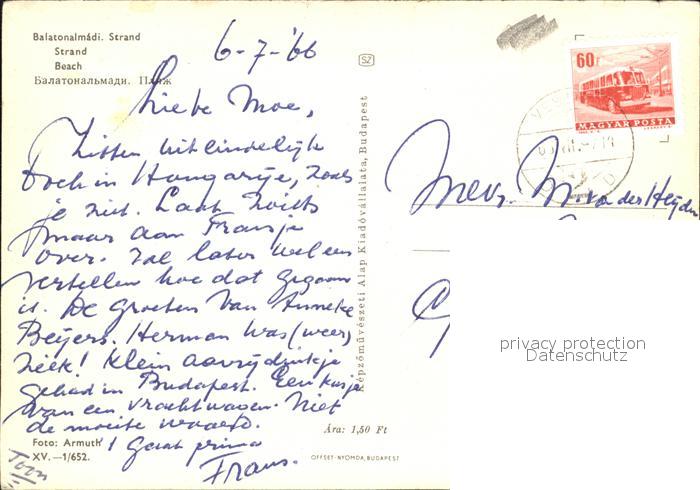 Balatonalmádi. Strand
Strand
Beach
Балатональмади. Пляж
6-7-'66
Liebe Moe,
Zitten uiteindelijk
toch in Hongarije, zoals
je ziet. Laat zoiets
maar aan Fransje
over. Zal later wel een
vertellen hoe dat gegaan
is. De groeten van Anneke
Beijers. Herman was (weer)
ziek! Klein aavrijdinkje
gehad in Budapest. Een kusje
van een vrachtwagen. Niet
de moeite waard.
't gaat prima
Frans.
Toon
Foto: Armuth
XV.—1/652.
Képzőművészeti Alap Kiadóvállalata, Budapest
Ára: 1,50 Ft
OFFSET-NYOMDA, BUDAPEST
60f
MAGYAR POSTA
Mevr. M. v. der Heijden
privacy protection
Datenschutz